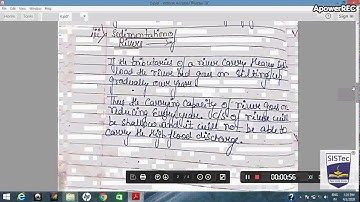 ApowerREC
iii) Sedimentation of
Rivers →
If the tributaries of a river carry Heavy
load the river bed goes on Silting up
gradually over years
Thus the carrying capacity of river goes on
reducing Every year. C/S of river will
be shallower and it will not be able to
carry the High flood discharge.
00:00:56
SISTec